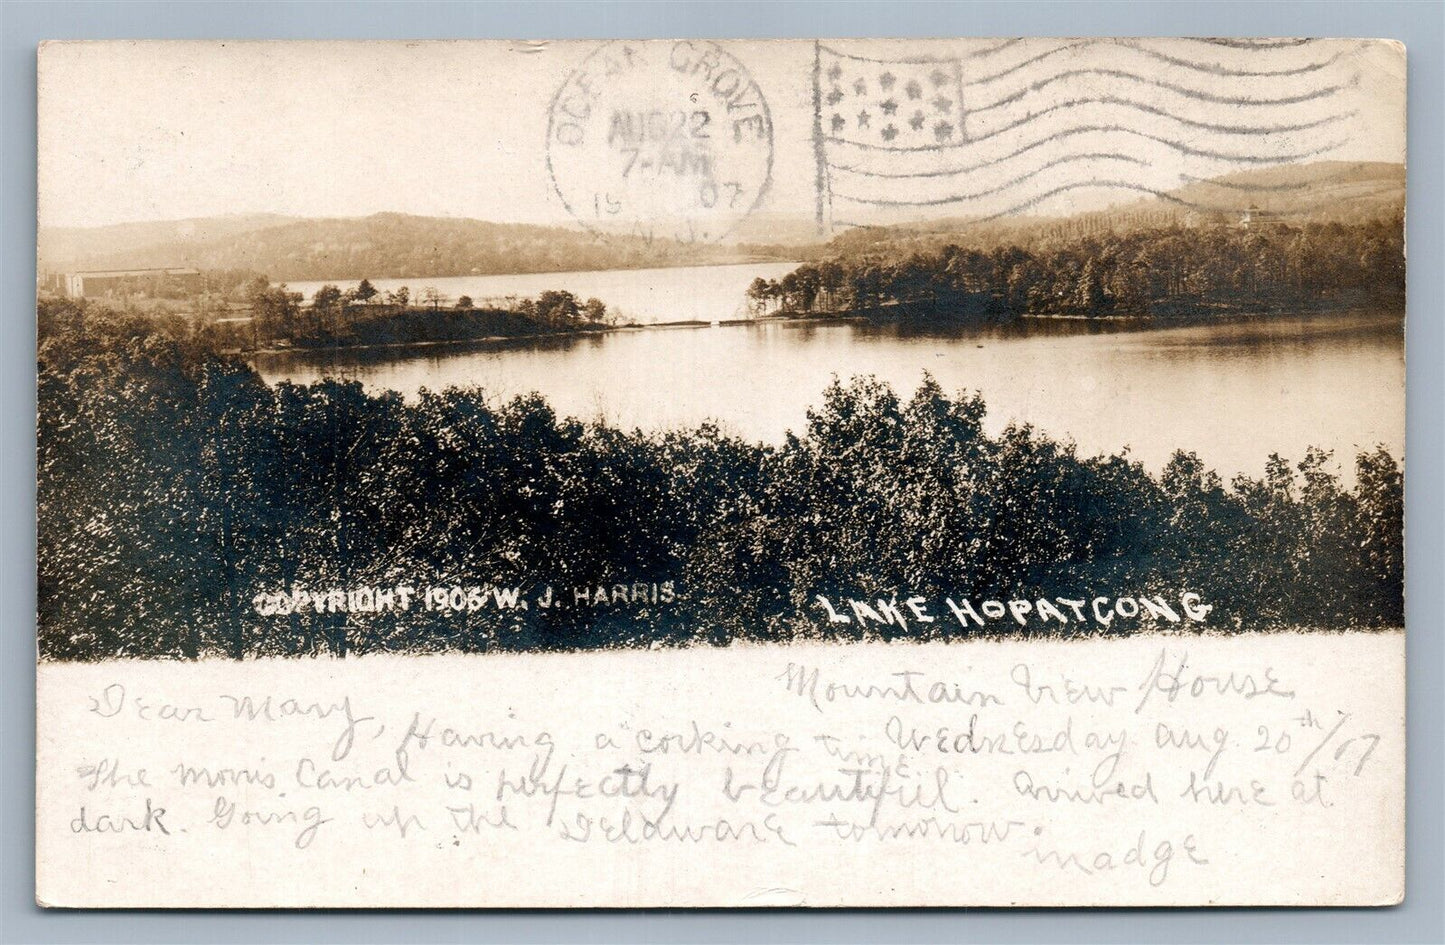 OCEAN GROVE
AUG 22
7-AM
19 07
N.J.
COPYRIGHT 1906 W. J. HARRIS
LAKE HOPATCONG
Mountain View House
Dear Mary,
Wednesday Aug. 20th/07
Having a corking time
The Morris Canal is perfectly beautiful. Arrived here at
dark. Going up the Delaware tomorrow.
Madge